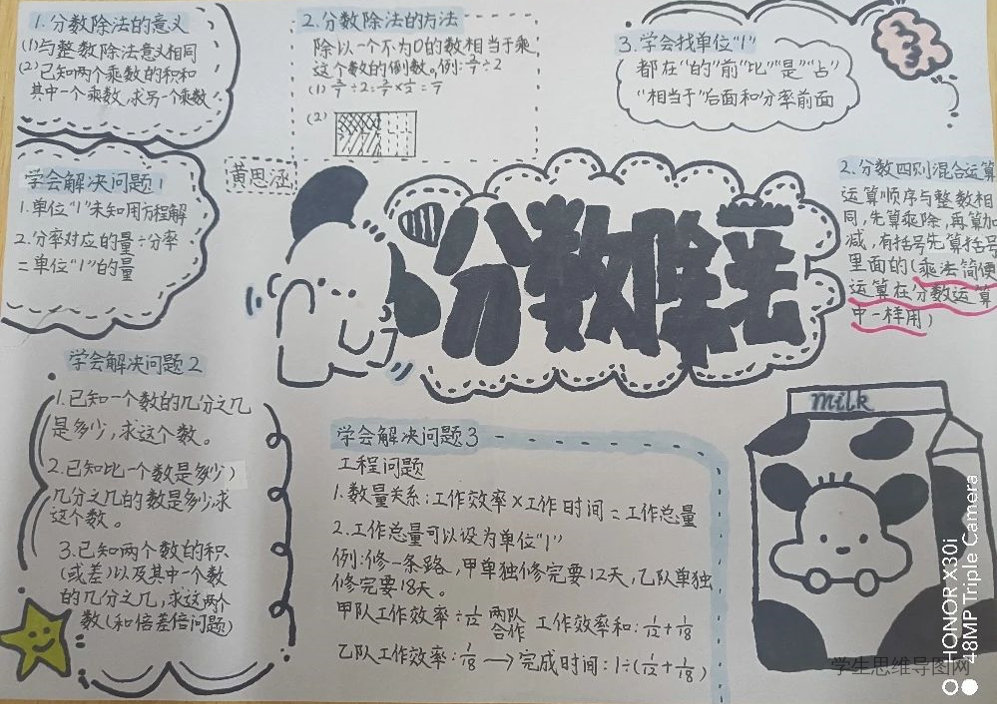 1.分数除法的意义
(1)与整数除法意义相同
(2)已知两个乘数的积和
其中一个乘数,求另一个乘数
2.分数除法的方法
除以一个不为0的数相当于乘
这个数的倒数。例:4/7÷2
(1) 4/7÷2=4/7×1/2=2/7
(2)
3.学会找单位"1"
都在"的"前"比""是""占"
"相当于"后面和分率前面
黄思涵
学会解决问题1
1.单位"1"未知用方程解
2.分率对应的量÷分率
=单位"1"的量
分数除法
2.分数四则混合运算
运算顺序与整数相
同,先算乘除,再算加
减,有括号先算括号
里面的(乘法简便
运算在分数运算
中一样用)
学会解决问题2
1.已知一个数的几分之几
是多少,求这个数。
2.已知比一个数是多少)
几分之几的数是多少求
这个数。
3.已知两个数的积
(或差)以及其中一个数
的几分之几,求这两个
数(和倍差倍问题)
学会解决问题3
工程问题
1.数量关系:工作效率×工作时间=工作总量
2.工作总量可以设为单位"1"
例:修一条路,甲单独修完要12天,乙队单独
修完要18天。
甲队工作效率÷1/12 两队合作 工作效率和:1/12+1/18
乙队工作效率:1/18→完成时间:1÷(1/12+1/18)
milk
学生思维导图网
HONOR X30i
48MP Triple Camera